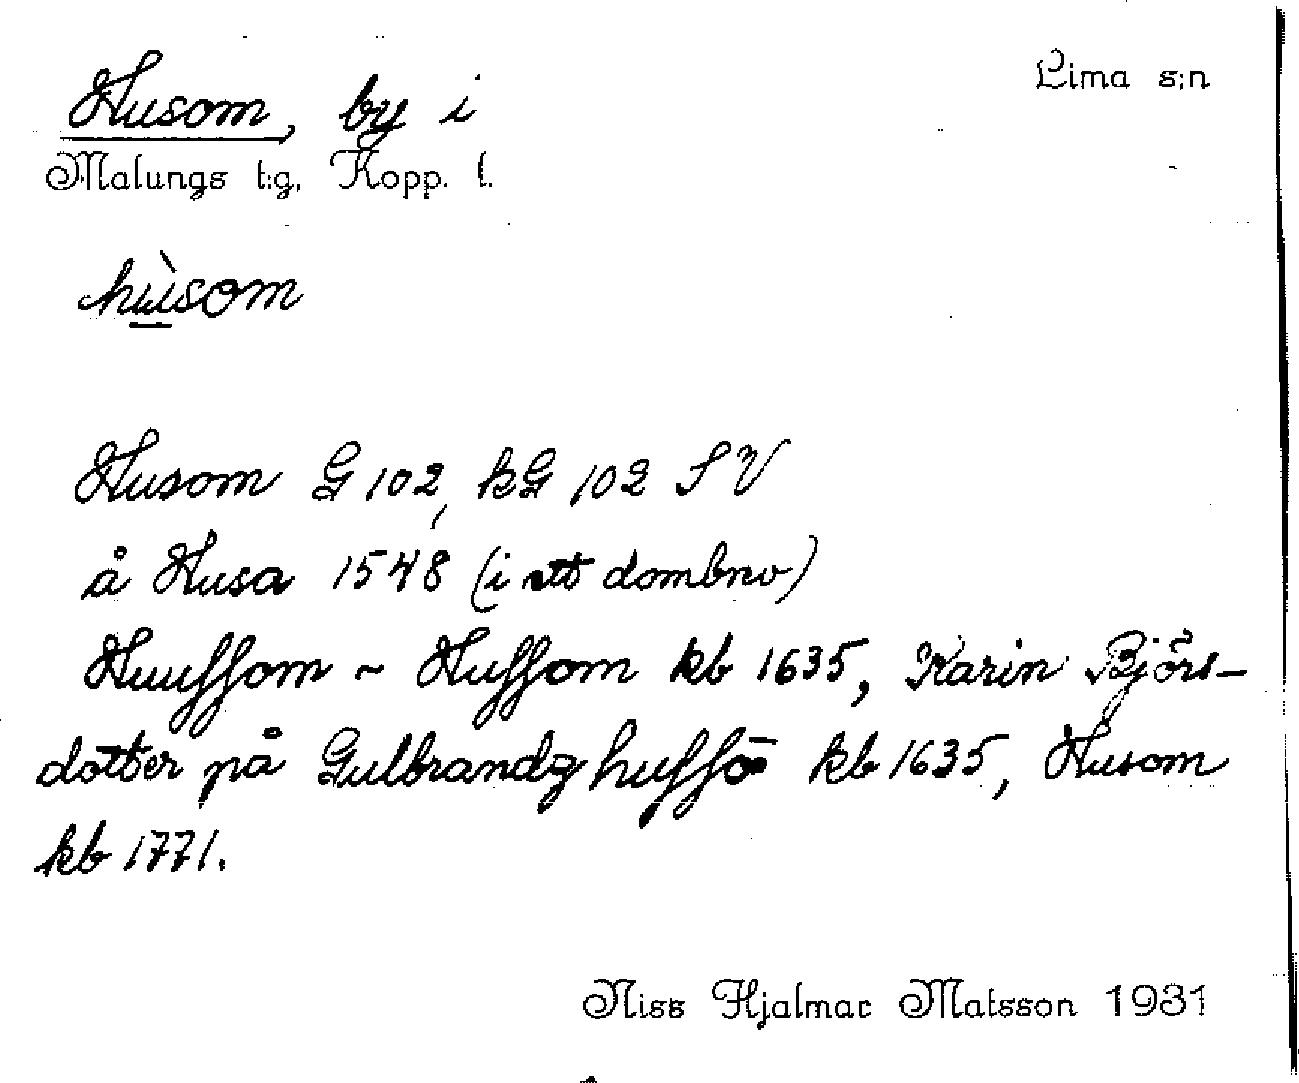 Lima s:n
Husom, by i
Malungs t:g, Kopp. l.
hùsom
Husom G 102, kG 102 SV
å Husa 1548 (i ett dombrev)
Huuſſom ~ Huſſom kb 1635, Karin Björs-
dotter på Gulbrandz huſſō kb 1635, Husom
kb 1771.
Niss Hjalmar Matsson 1931